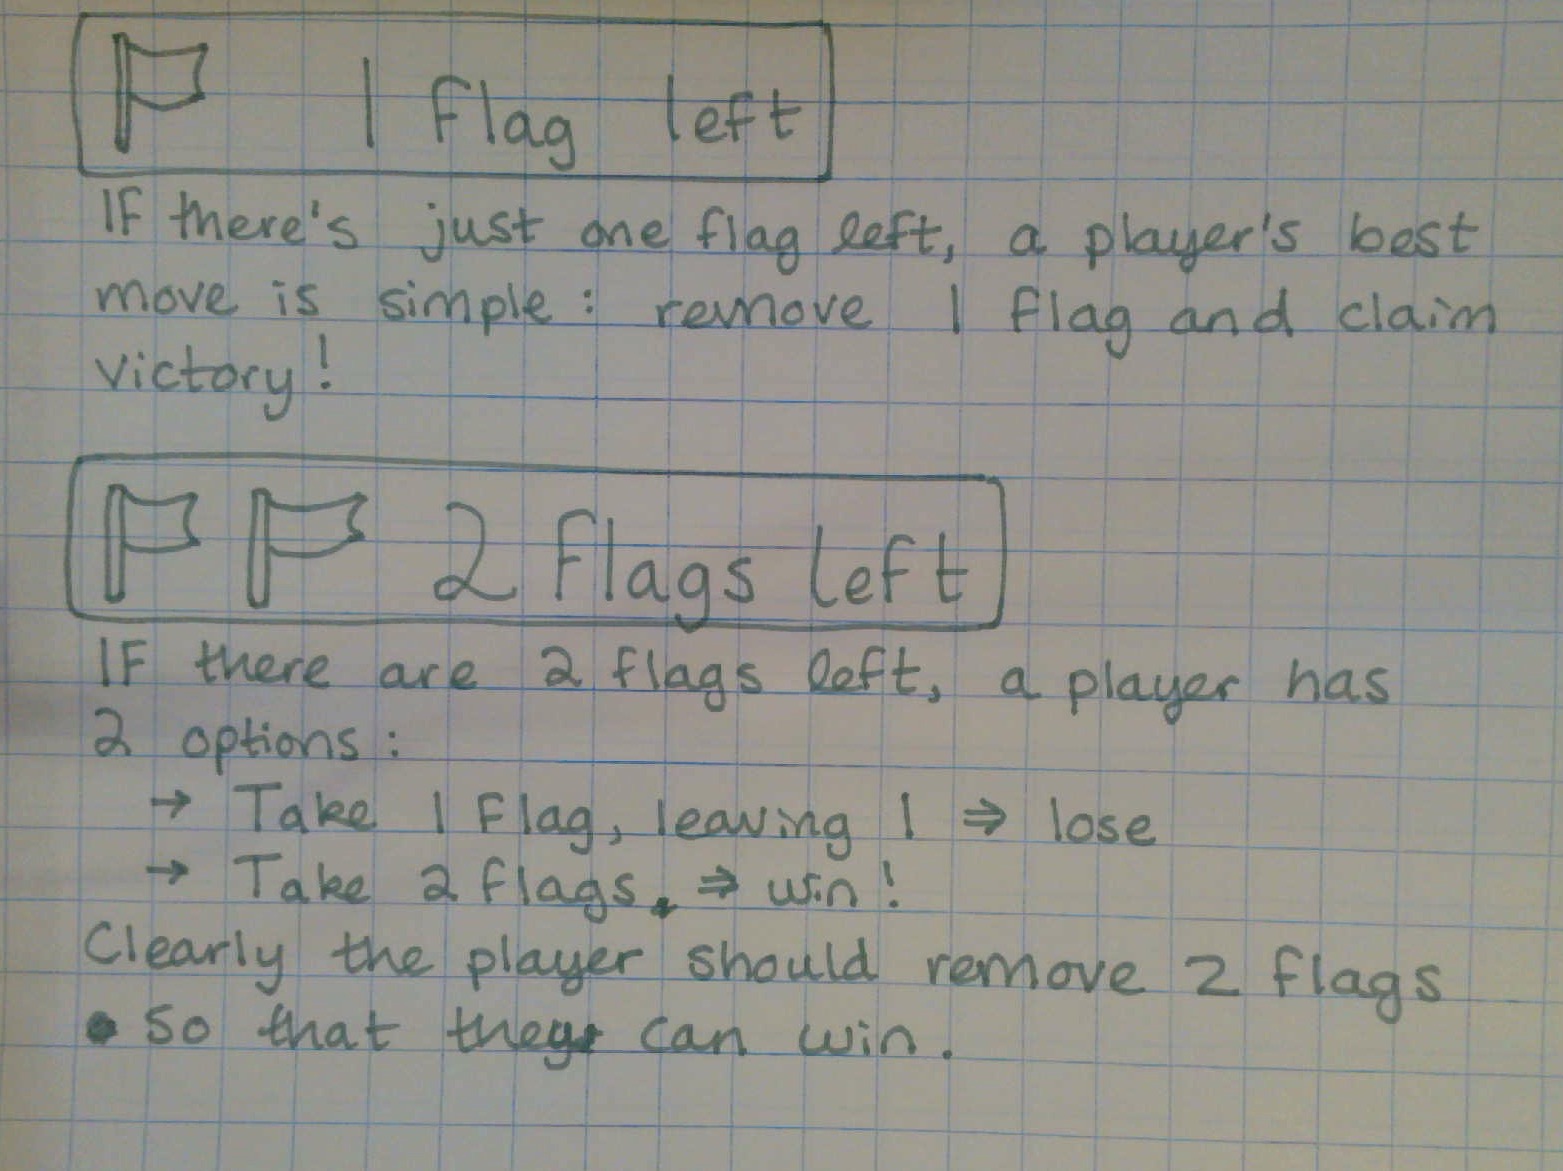 1 Flag left
IF there's just one flag left, a player's best
move is simple: remove 1 Flag and claim
victory!
2 Flags left
IF there are 2 flags left, a player has
2 options:
→ Take 1 Flag, leaving 1 ⇒ lose
→ Take 2 flags. ⇒ win!
Clearly the player should remove 2 flags
so that they can win.